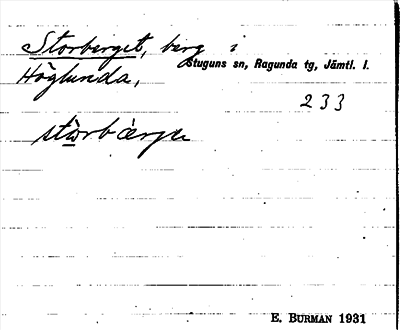 Storberget, berg i
Stuguns sn, Ragunda tg, Jämtl. l.
Höglunda,
233
E. BURMAN 1931